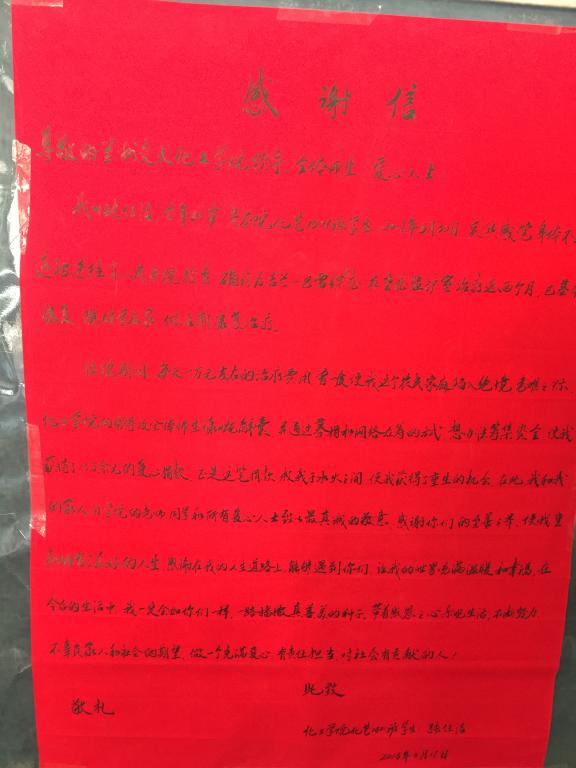 感谢信
尊敬的兰州交大化工学院领导、全体师生、爱心人士
我叫张仕治,今年21岁,是 学院化艺 班学生,2018年2月20日,突然感觉身体不
进 人民医院检查,确诊为吉兰-巴雷综合 在重症监护室治疗近两个月,已基本
恢复,现 家做后期康复治疗。
住院期间,每天一万元左右的治疗费用,曾一度使我这个农民家庭陷入绝境,危难之际,
化工学院的领导及全体师生慷慨解囊,并通过募捐和网络众筹的方式,想办法筹集资金,使我
筹措了 万余元的爱心捐款,正是这笔捐款,救我于水火之间,使我获得了重生的机会,在此,我和我
的家人向学院的老师同学和所有爱心人士致以最真诚的敬意,感谢你们的至善之举,使我重
新拥有了美好的人生,感谢在我的人生道路上,能够遇到你们,让我的世界充满温暖和幸福,在
今后的生活中,我一定会如你们一样,一路播撒真善美的种子,带着感恩之心乐观生活,不断努力,
不辜负家人和社会的期望,做一个充满爱心,有责任担当,对社会有贡献的人!
此致
敬礼
化工学院化艺 班学生:张仕治
2018年4月15日